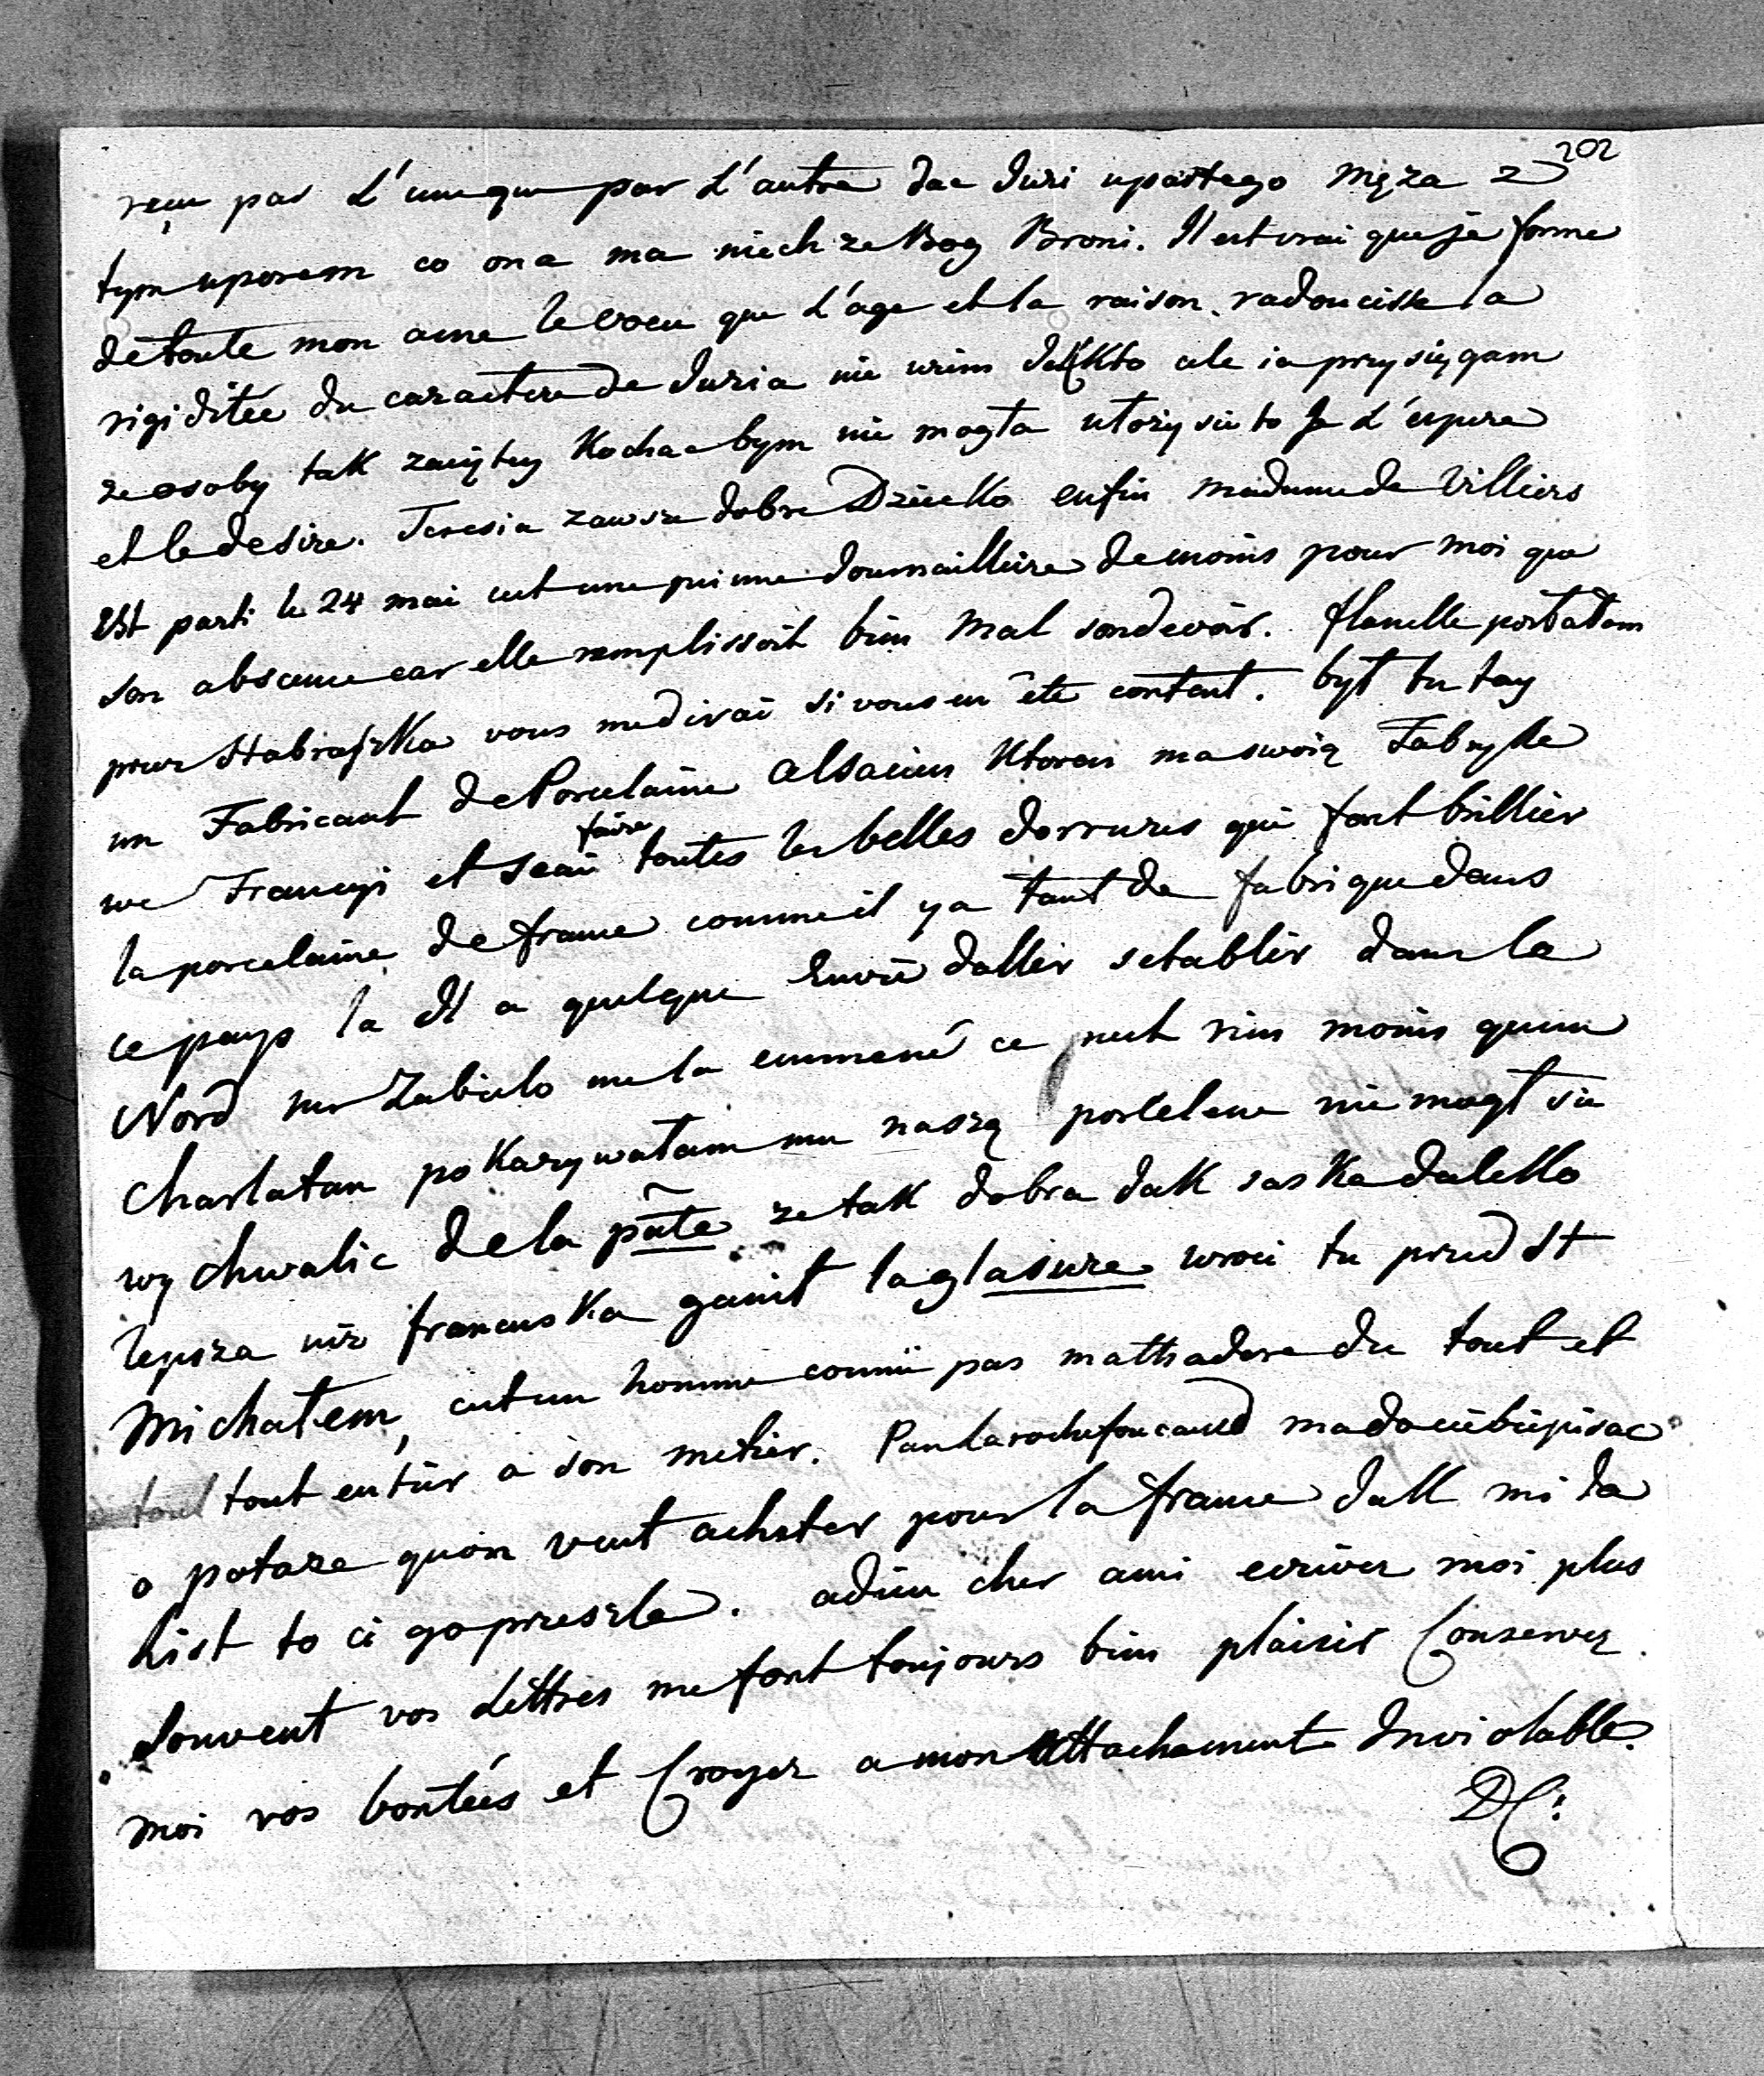 202
reçu par L'une que par L'autre dac Juzi upartego Męza z
tym uporem co ona ma niech ze Bog Broni. Il est vrai que je forme
de toute mon ame le voeu que L'age et la raison radoucisse la
rigiditée du caractere de Juzia nie wiem Jak Kto ale ia przysięgam
ze osoby tak zawziętey Kochac bym nie mogła ułozy sie to Je L'espere
et le desire. Teresia zawsze dobre Dziecko enfin madame de Villiers
Est parti le 24 mai cest une peinne Journailliere de moins pour moi que
son absence car elle remplissoit bien mal son devoir. flanelle posłałam
pour Stabrofska vous me dirai si vous en ête content. był tu tay
un Fabricant de Porcelaine Alsacien Ktoren ma swoią Fabryke
we Francyi et scait faire toutes les belles dorrures qui font brillier
la porcelaine de france comme il y a tant de fabrique dans
ce pays la Il a quelque Envie daller setablir dans le
Nord mr Zabielo me la emmené ce nest rien moins quun
Charlatan pokazywałam mu naszą porcelene nie mogł sie
wychwalic de la pâte ze tak dobra Jak saska daleko
lepsza niz francuska ganił la glasure wroci tu przed St
Michałem, cest un homme connü pas mathadore du tout et
tout tout entier a son metier. Pan Larochefoucauld ma do ciebie pisac
o potaze quon veut acheter pour la france Jak mi da
List to ci go przeszle. adieu cher ami ecriver moi plus
Souvent vos Lettres me font toujours bien plaisir Conservez
moi vos bontées et Croyez a mon Attachement Inviolable.
DC: